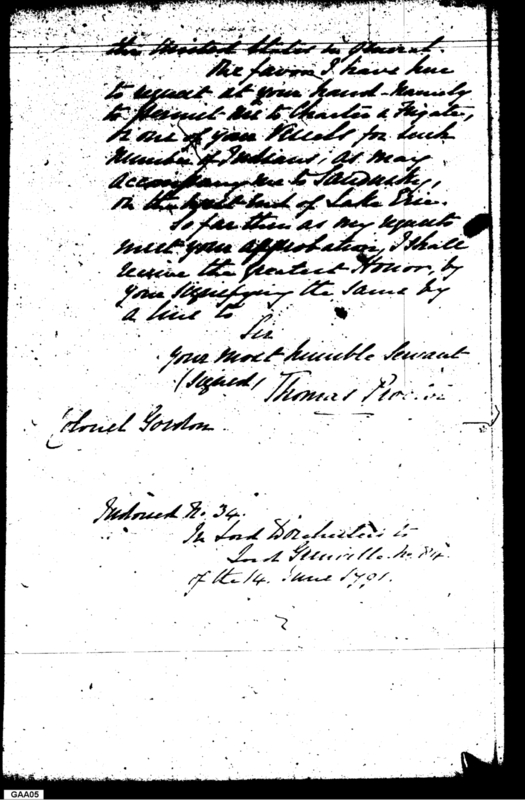 the United States in general.
The favor I have here
to request at your hand namely
to permit me to Charter a Frigate,
or one of your Vessels for such
number of Indians, as may
accompany me to Sandusky,
on the West end of Lake Erie.
So far then as my requests
meet your approbation, I shall
receive the greatest Honor, by
your signifying the same by
a line to
Sir
your most humble Servant
(signed) Thomas Proctor
Colonel Gordon.
Endorsed No. 34.
In Lord Dorchester's to
Lord Grenville No. 84.
of the 14. June 1791.
GAA05